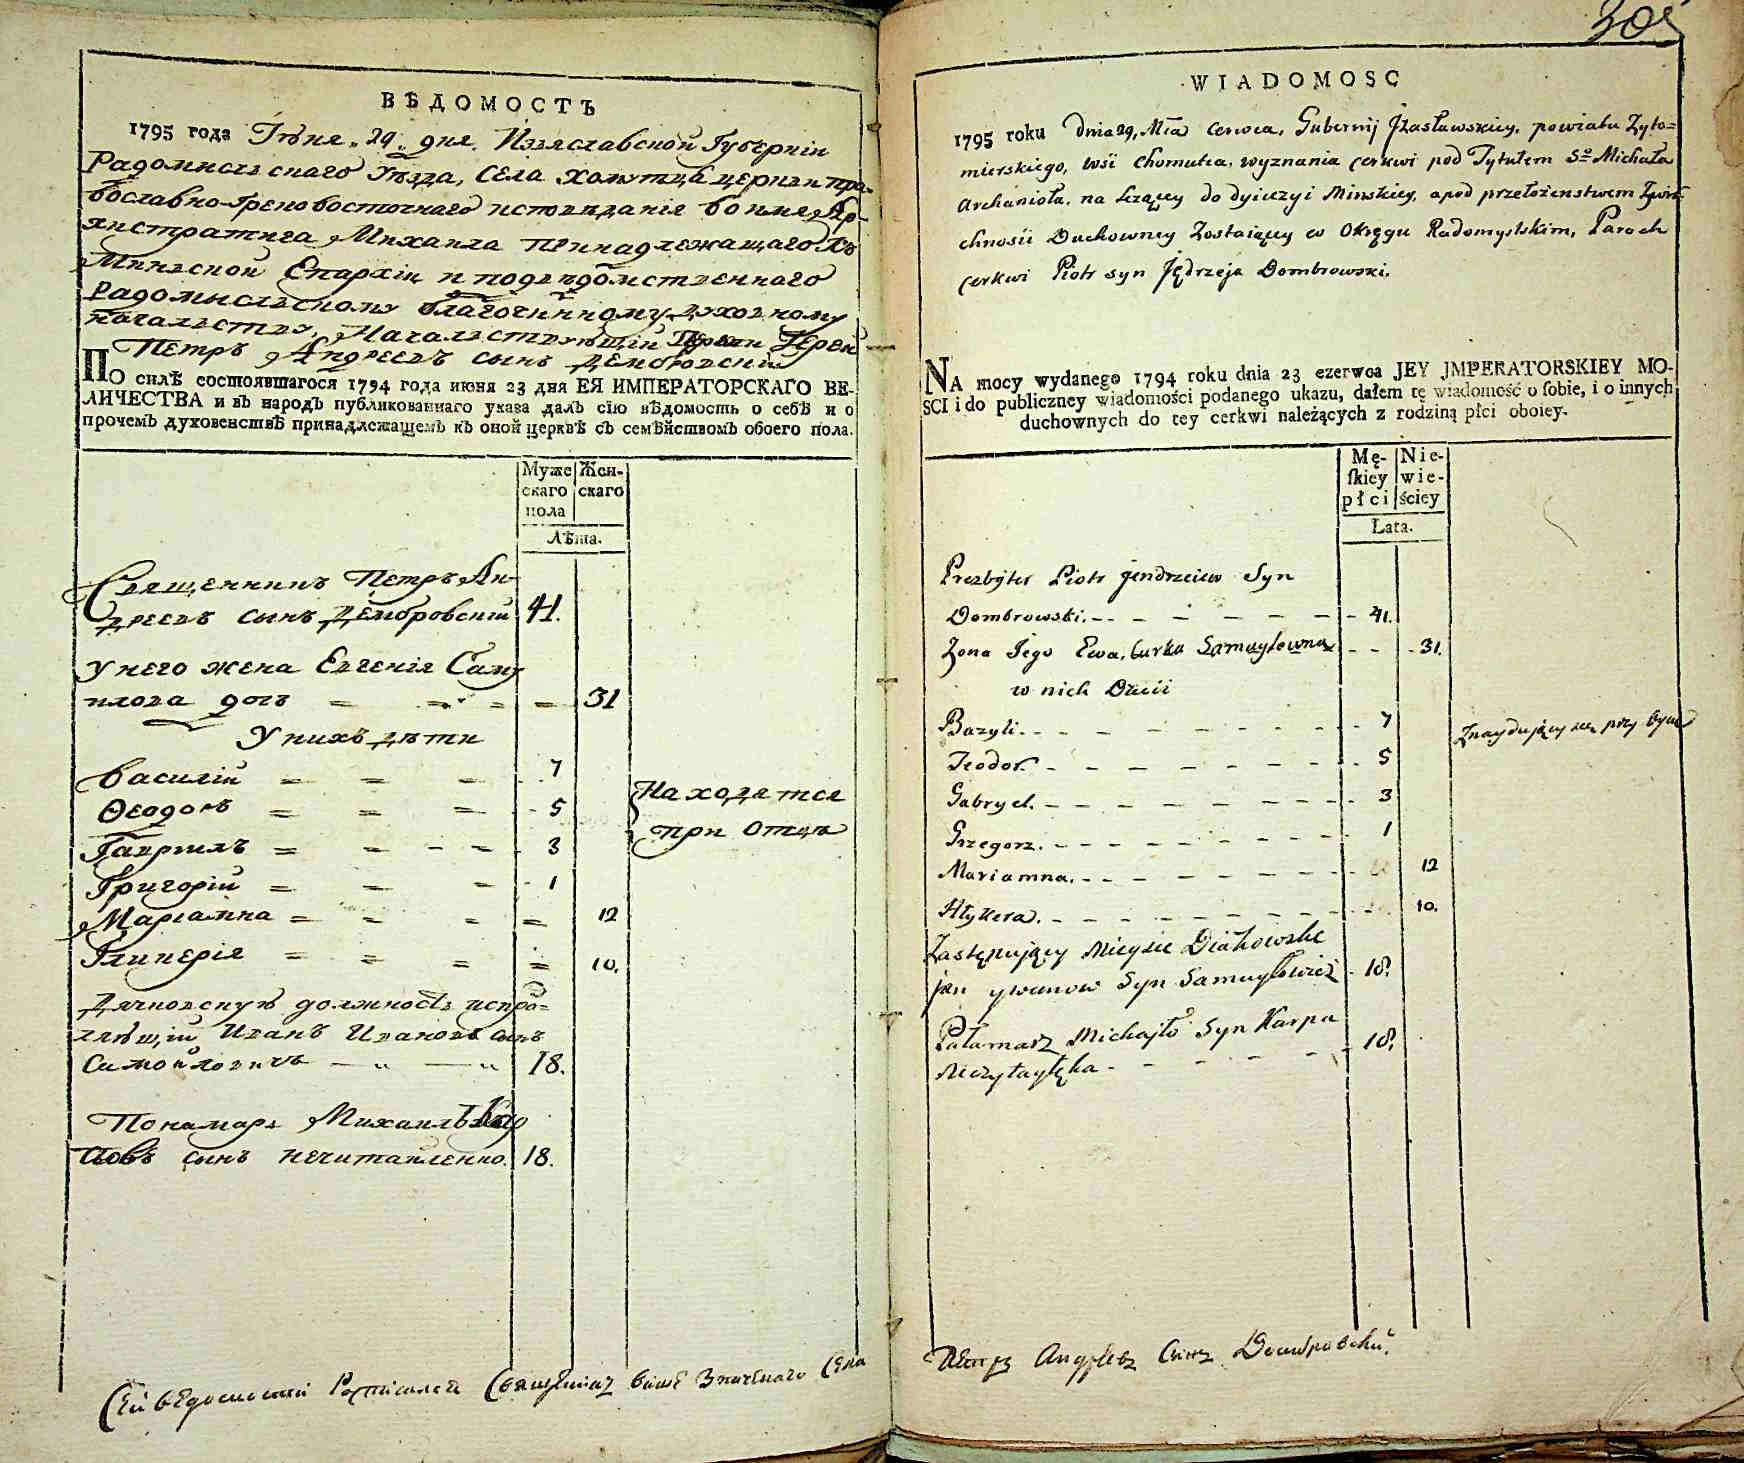 ВѢДОМОСТЬ
1795 года Іюня 29 дня Изяславской Губерніи
Радомысльскаго Уѣзда, Села Хомутца церкви пра-
вославно-Грековосточнаго исповѣданія во имя Ар-
хистратига Михаила принадлежащаго къ
Минской Епархіи и подвѣдомственнаго
Радомысльскому благочинному духовному
начальству, Началствующій Іерей
Петръ Андреевъ сынъ Дембровскій
ПО силѣ состоявшагося 1794 года июня 23 дня ЕЯ ИМПЕРАТОРСКАГО ВЕ-
ЛИЧЕСТВА и въ народъ публикованнаго указа далъ сію вѣдомость о себѣ и о
прочемъ духовенствѣ принадлежащемъ къ оной церквѣ съ семѣйствомъ обоего пола.
Муже Жен-
скаго скаго
пола
Лѣта.
Священникъ Петръ Ан-
дреевъ сынъ Дембровскій 41.
У него жена Евгенія Саму
илова дочь 31
У нихъ дѣти
Василій 7
Ѳеодоръ 5
Гавриилъ 3
Григорій 1
Маріамна 12
Гликерія 10.
Находятся
при Отцѣ
Дячковскую должность испра-
вляющій Иванъ Ивановъ сынъ
Самойловичъ 18.
Пономарь Михаилъ Кар
повъ сынъ Нечитайленко. 18.
Сей вѣдомости Росписался Священикъ више Значенаго Села
305
WIADOMOSC
1795 roku dnia 29, Mca Cerwca, Gubernij Jzasławskiey, powiatu Zyto=
mierskiego, wsi Chomutca, wyznania cerkwi pod Tytułem So Michała
Archanioła, na leżącey do dyieczyi Minskiey, a pod przełożenstwem Zwirz
chnosii Duchowney Zostaiącey w Okręgu Radomyslskim, Paroch
cerkwi Piotr syn Jędrzeja Dombrowski.
NA mocy wydanego 1794 roku dnia 23 czerwca JEY JMPERATORSKIEY MO-
SCI i do publiczney wiadomości podanego ukazu, dałem tę wiadomość o sobie, i o innych
duchownych do tey cerkwi należących z rodziną płci oboiey.
Mę- Nie-
skiey wie-
płci ściey
Lata.
Prezbyter Piotr Jendrzeiew Syn
Dombrowski. 41.
Zona Jego Ewa, Curka Samuyłowna 31.
w nich Dzieii
Bazyli. 7
Znaydujący sie przy Oycu
Teodor. 5
Gabryel. 3
Grzegorz. 1
Mariamna. 12
Hłykera. 10.
Zastępujący Mieysce Diakowskie
jan ywanow Syn Samuyłowicz 18.
Pałamarz Michajło Syn Karpa
Neczytayłęka 18.
Петръ Андреевъ Синъ Домбровский.